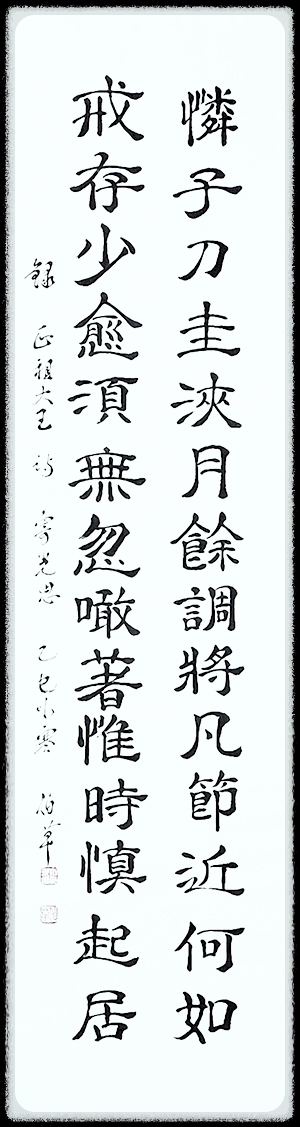 憐子刀圭浹月餘調將凡節近何如
戒存少愈須無忽噉著惟時慎起居
錄 正祖大王 詩 寄光恩 乙巳小寒